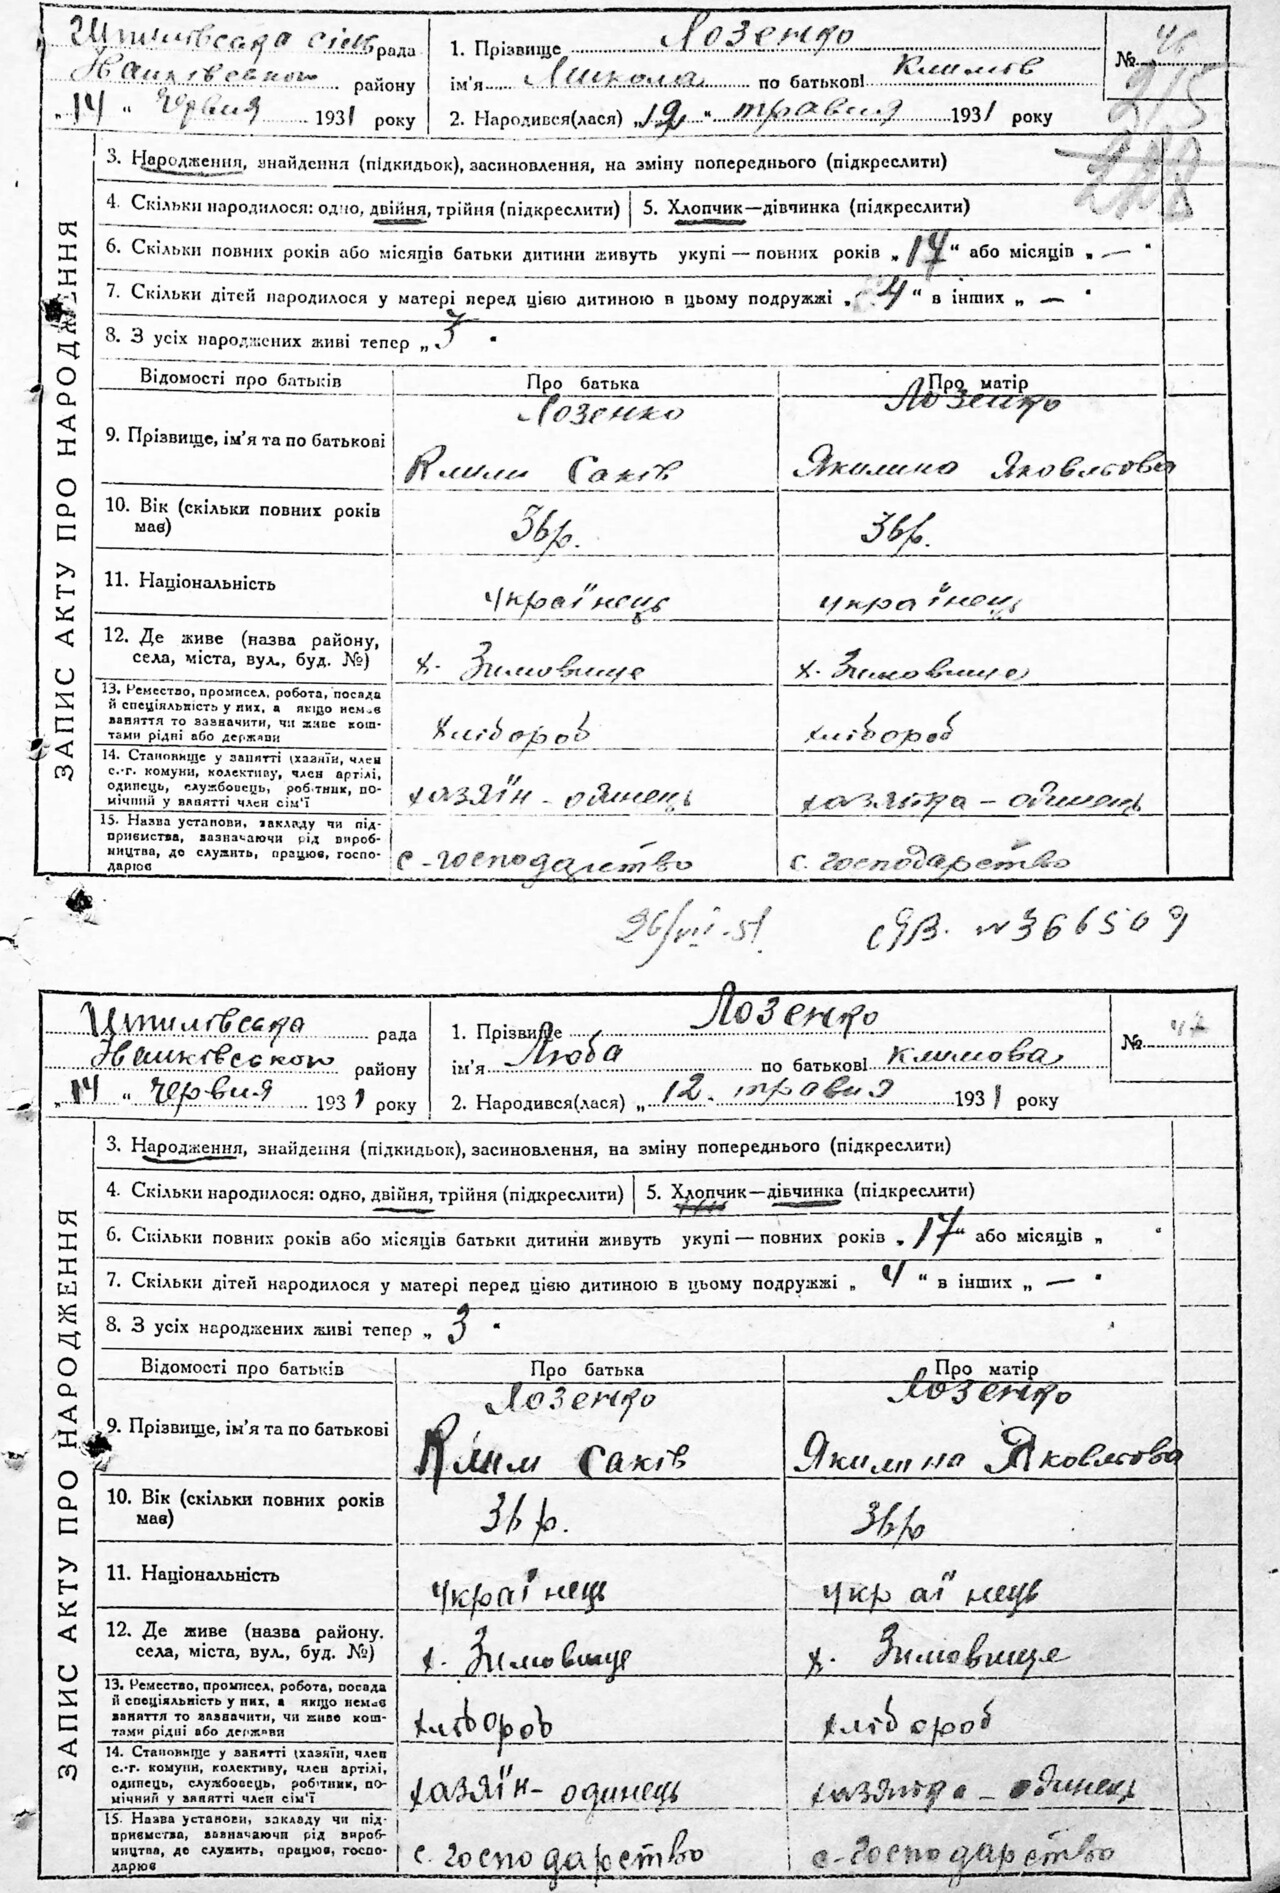 Шпилівська сільрада
Іванківського району
„14“ червня 1931 року
1. Прізвище Лозенко
ім'я Микола по батькові Климів
2. Народився(лася) „12“ травня 1931 року
№ 46
215
ЗАПИС АКТУ ПРО НАРОДЖЕННЯ
3. Народження, знайдення (підкидьок), засиновлення, на зміну попереднього (підкреслити)
4. Скільки народилося: одно, двійня, трійня (підкреслити) 5. Хлопчик—дівчинка (підкреслити)
6. Скільки повних років або місяців батьки дитини живуть укупі — повних років „17“ або місяців „—“
7. Скільки дітей народилося у матері перед цією дитиною в цьому подружжі „4“ в інших „—“
8. З усіх народжених живі тепер „3“
Відомості про батьків Про батька Про матір
9. Прізвище, ім'я та по батькові Лозенко Лозенко
Клим Саків Якилина Яковлєва
10. Вік (скільки повних років
має) 36 р. 36 р.
11. Національність українець українець
12. Де живе (назва району,
села, міста, вул., буд. №) х. Зимовище х. Зимовище
13. Ремество, промисел, робота, посада
й спеціяльність у них, а якщо немає
заняття то зазначити, чи живе кош-
тами рідні або держави хлібороб хлібороб
14. Становище у занятті (хазяїн, член
с.-г. комуни, колективу, член артілі,
одинець, службовець, робітник, по-
мічний у занятті член сім'ї хазяїн - одинець хазяйка - одинець
15. Назва установи, закладу чи під-
приємства, зазначаючи рід вироб-
ництва, де служить, працює, госпо-
дарює с-господарство с. господарство
26/VII-51 №366509
Шпилівська рада
Іванківського району
„14“ червня 1931 року
1. Прізвище Лозенко
ім'я Люба по батькові Климова
2. Народився(лася) „12. травня 1931 року
№ 47
ЗАПИС АКТУ ПРО НАРОДЖЕННЯ
3. Народження, знайдення (підкидьок), засиновлення, на зміну попереднього (підкреслити)
4. Скільки народилося: одно, двійня, трійня (підкреслити) 5. Хлопчик—дівчинка (підкреслити)
6. Скільки повних років або місяців батьки дитини живуть укупі — повних років „17“ або місяців „ “
7. Скільки дітей народилося у матері перед цією дитиною в цьому подружжі „4“ в інших „—“
8. З усіх народжених живі тепер „3“
Відомості про батьків Про батька Про матір
9. Прізвище, ім'я та по батькові Лозенко Лозенко
Клим Саків Якилина Яковлєва
10. Вік (скільки повних років
має) 36 р. 36 р
11. Національність українець українець
12. Де живе (назва району.
села, міста, вул., буд. №) х. Зимовище х. Зимовище
13. Ремество, промисел, робота, посада
й спеціяльність у них, а якщо немає
заняття то зазначити, чи живе кош-
тами рідні або держави хлібороб хлібороб
14. Становище у занятті (хазяїн, член
с.-г. комуни, колективу, член артілі,
одинець, службовець, робітник, по-
мічний у занятті член сім'ї хазяїн - одинець хазяйка - одинець
15. Назва установи, закладу чи під-
приємства, зазначаючи рід вироб-
ництва, де служить, працює, госпо-
дарює с. господарство с-господарство